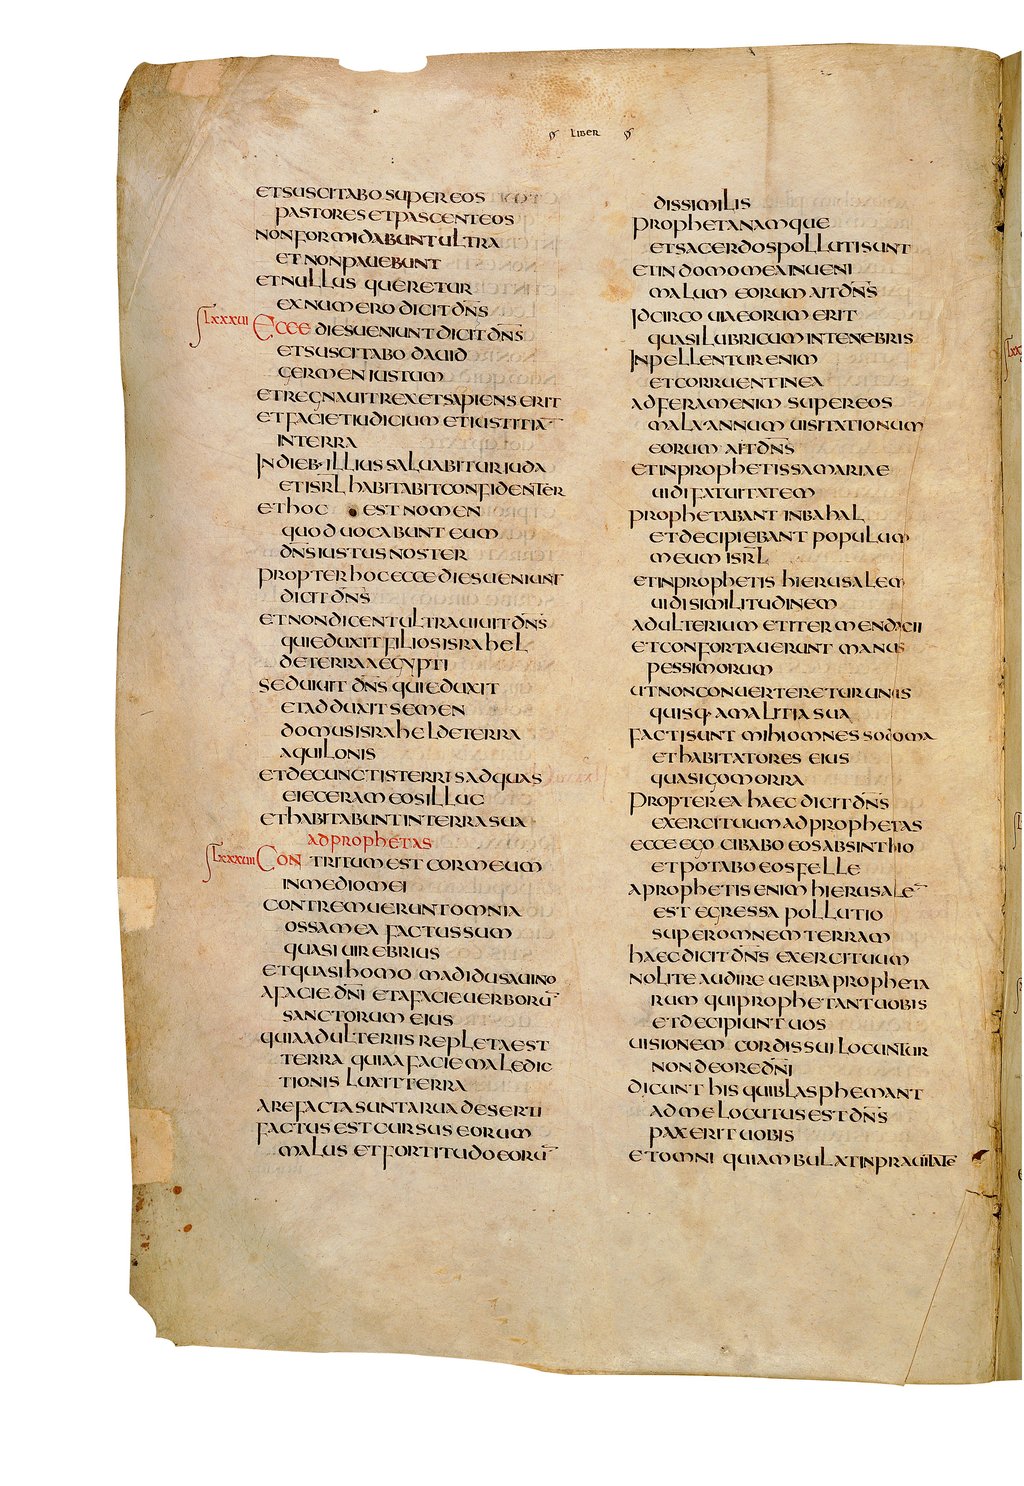 LIBER
ETSUSCITABO SUPER EOS
PASTORES ETPASCENTEOS
NONFORMIDABUNT ULTRA
ET NONPAUEBUNT
ETNULLUS QUERETUR
EXNUMERO DICIT DN̄S
LXXXIII ECCE DIESUENIUNT DICIT DN̄S
ETSUSCITABO DAUID
GERMEN IUSTUM
ETREGNAUIT REX ETSAPIENS ERIT
ETFACIET IUDICIUM ETIUSTITIĀ
INTERRA
INDIEB· ILLIUS SALUABITUR IUDA
ETISR̄L HABITABIT CONFIDENTER
ETHOC EST NOMEN
QUOD UOCABUNT EUM
DN̄S IUSTUS NOSTER
PROPTER HOC ECCE DIES UENIUNT
DICIT DN̄S
ETNONDICENT ULTRA UIUIT DN̄S
QUIEDUXIT FILIOS ISRAHEL
DETERRA AEGYPTI
SEDUIUIT DN̄S QUI EDUXIT
ETADDUXIT SEMEN
DOMUS ISRAHEL DETERRA
AQUILONIS
ETDECUNCTIS TERRIS ADQUAS
EIECERAM EOS ILLUC
ETHABITABUNT INTERRA SUA
ADPROPHETAS
LXXXIIII CONTRITUM EST COR MEUM
INMEDIO MEI
CONTREMUERUNT OMNIA
OSSA MEA FACTUS SUM
QUASI UIR EBRIUS
ETQUASI HOMO MADIDUS AUINO
AFACIE DN̄I ETAFACIE UERBORŪ
SANCTORUM EIUS
QUIA ADULTERIIS REPLETA EST
TERRA QUIA AFACIE MALEDIC
TIONIS LUXIT TERRA
AREFACTA SUNT ARUA DESERTI
FACTUS EST CURSUS EORUM
MALUS ETFORTITUDO EORŪ
DISSIMILIS
PROPHETA NAMQUE
ETSACERDOS POLLUTI SUNT
ETIN DOMO MEA INUENI
MALUM EORUM AIT DN̄S
IDCIRCO UIA EORUM ERIT
QUASI LUBRICUM INTENEBRIS
INPELLENTUR ENIM
ETCORRUENT INEA
ADFERAM ENIM SUPER EOS
MALA· ANNUM UISITATIONUM
EORUM AIT DN̄S
ETINPROPHETIS SAMARIAE
UIDI FATUITATEM
PROPHETABANT INBAHAL
ETDECIPIEBANT POPULUM
MEUM ISR̄L
ETINPROPHETIS HIERUSALEM
UIDI SIMILITUDINEM
ADULTERIUM ETITER MENDACII
ETCONFORTAUERUNT MANUS
PESSIMORUM
UTNONCONUERTERETUR UNUS
QUISQ· AMALITIA SUA
FACTISUNT MIHI OMNES SODOMA
ETHABITATORES EIUS
QUASI GOMORRA
PROPTEREA HAEC DICIT DN̄S
EXERCITUUM ADPROPHETAS
ECCE EGO CIBABO EOS ABSINTHIO
ETPOTABO EOS FELLE
APROPHETIS ENIM HIERUSALĒ
EST EGRESSA POLLUTIO
SUPER OMNEM TERRAM
HAEC DICIT DN̄S EXERCITUUM
NOLITE AUDIRE UERBA PROPHETA
RUM QUI PROPHETANT UOBIS
ETDECIPIUNT UOS
UISIONEM CORDIS SUI LOCUNTUR
NON DEORE DN̄I
DICUNT HIS QUIBLASPHEMANT
ADME LOCUTUS EST DN̄S
PAX ERIT UOBIS
ETOMNI QUIAMBULAT INPRAUITATE